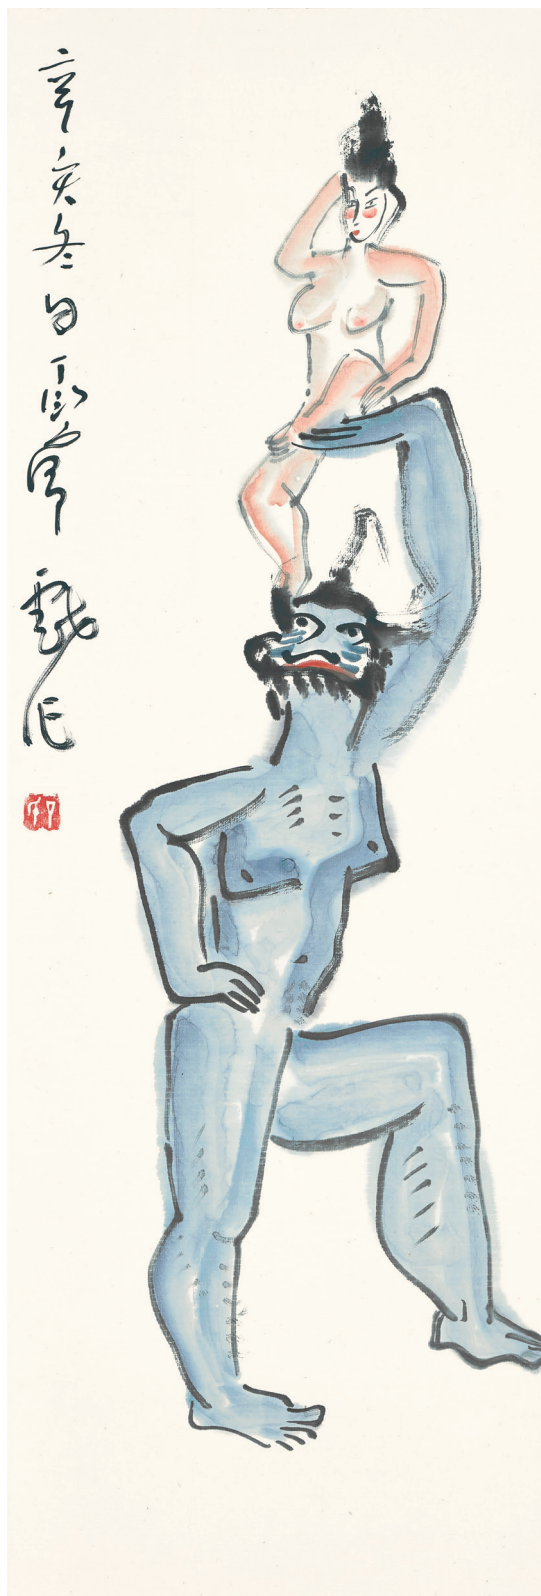 辛亥冬日丁衍庸戲作